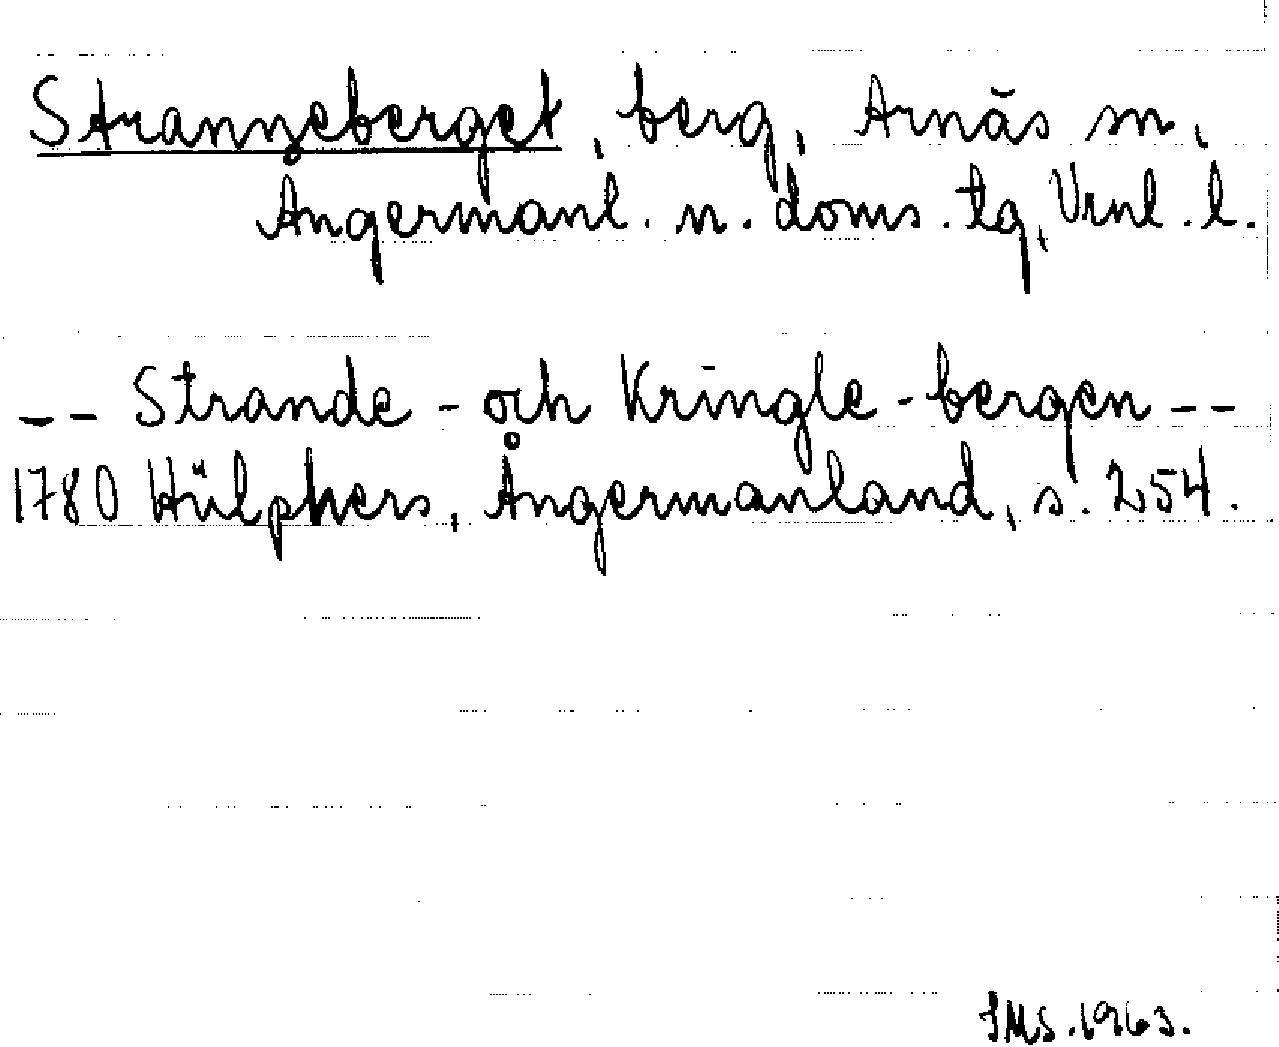 Stranneberget, berg, Arnäs sn,
Ångermanl. n. doms. tg, Vrnl. l.
-- Strande - och Kringle - bergen --
1780 Hülphers, Ångermanland, s. 254.
IMS. 1963.